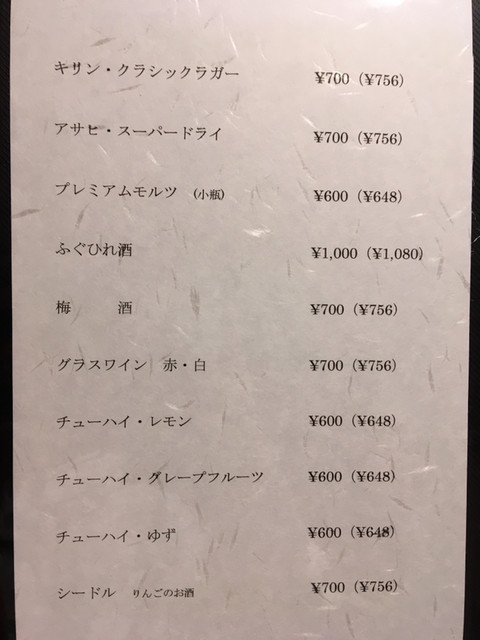 キリン・クラシックラガー ¥700（¥756）
アサヒ・スーパードライ ¥700（¥756）
プレミアムモルツ （小瓶） ¥600（¥648）
ふぐひれ酒 ¥1,000（¥1,080）
梅　　　酒 ¥700（¥756）
グラスワイン　赤・白 ¥700（¥756）
チューハイ・レモン ¥600（¥648）
チューハイ・グレープフルーツ ¥600（¥648）
チューハイ・ゆず ¥600（¥648）
シードル　りんごのお酒 ¥700（¥756）